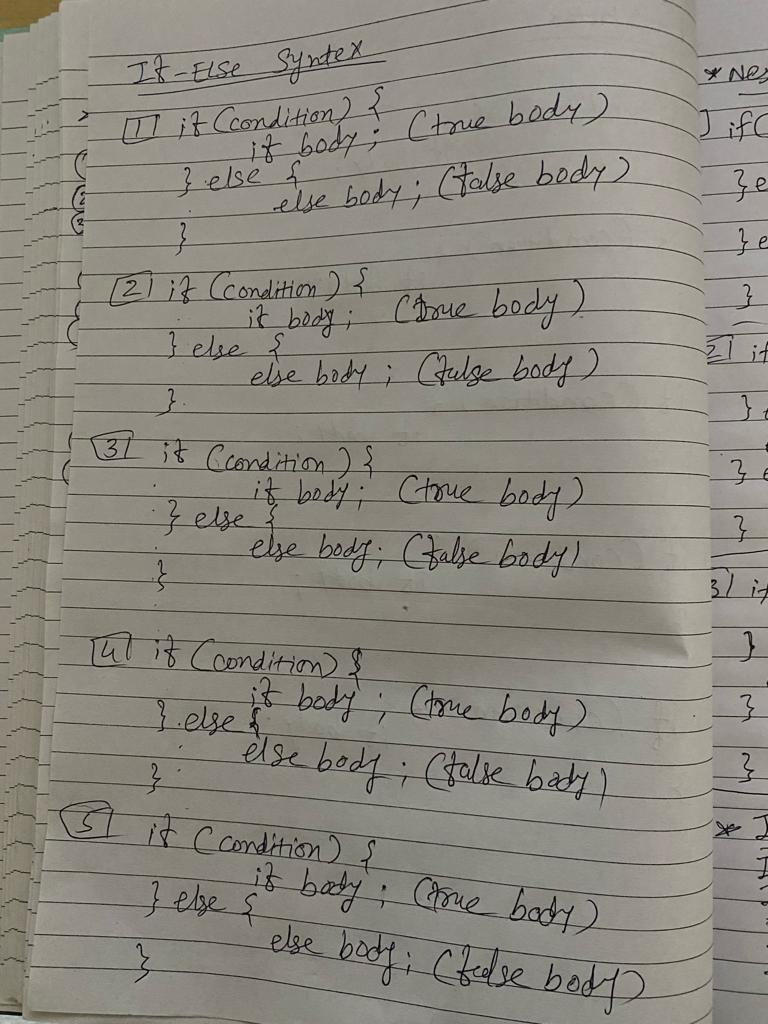 If-Else Syntex
1 if (condition) {
if body ; (true body)
} else {
else body ; (false body)
}
2 if (condition) {
if body ; (true body)
} else {
else body ; (false body)
}
3 if (condition) {
if body ; (true body)
} else {
else body ; (false body)
}
4 if (condition) {
if body ; (true body)
} else {
else body ; (false body)
}
5 if (condition) {
if body ; (true body)
} else {
else body ; (false body)
}
* Nes
] if (
} e
} e
}
2] if
}
} e
}
3] if
}
}
}
* I
I